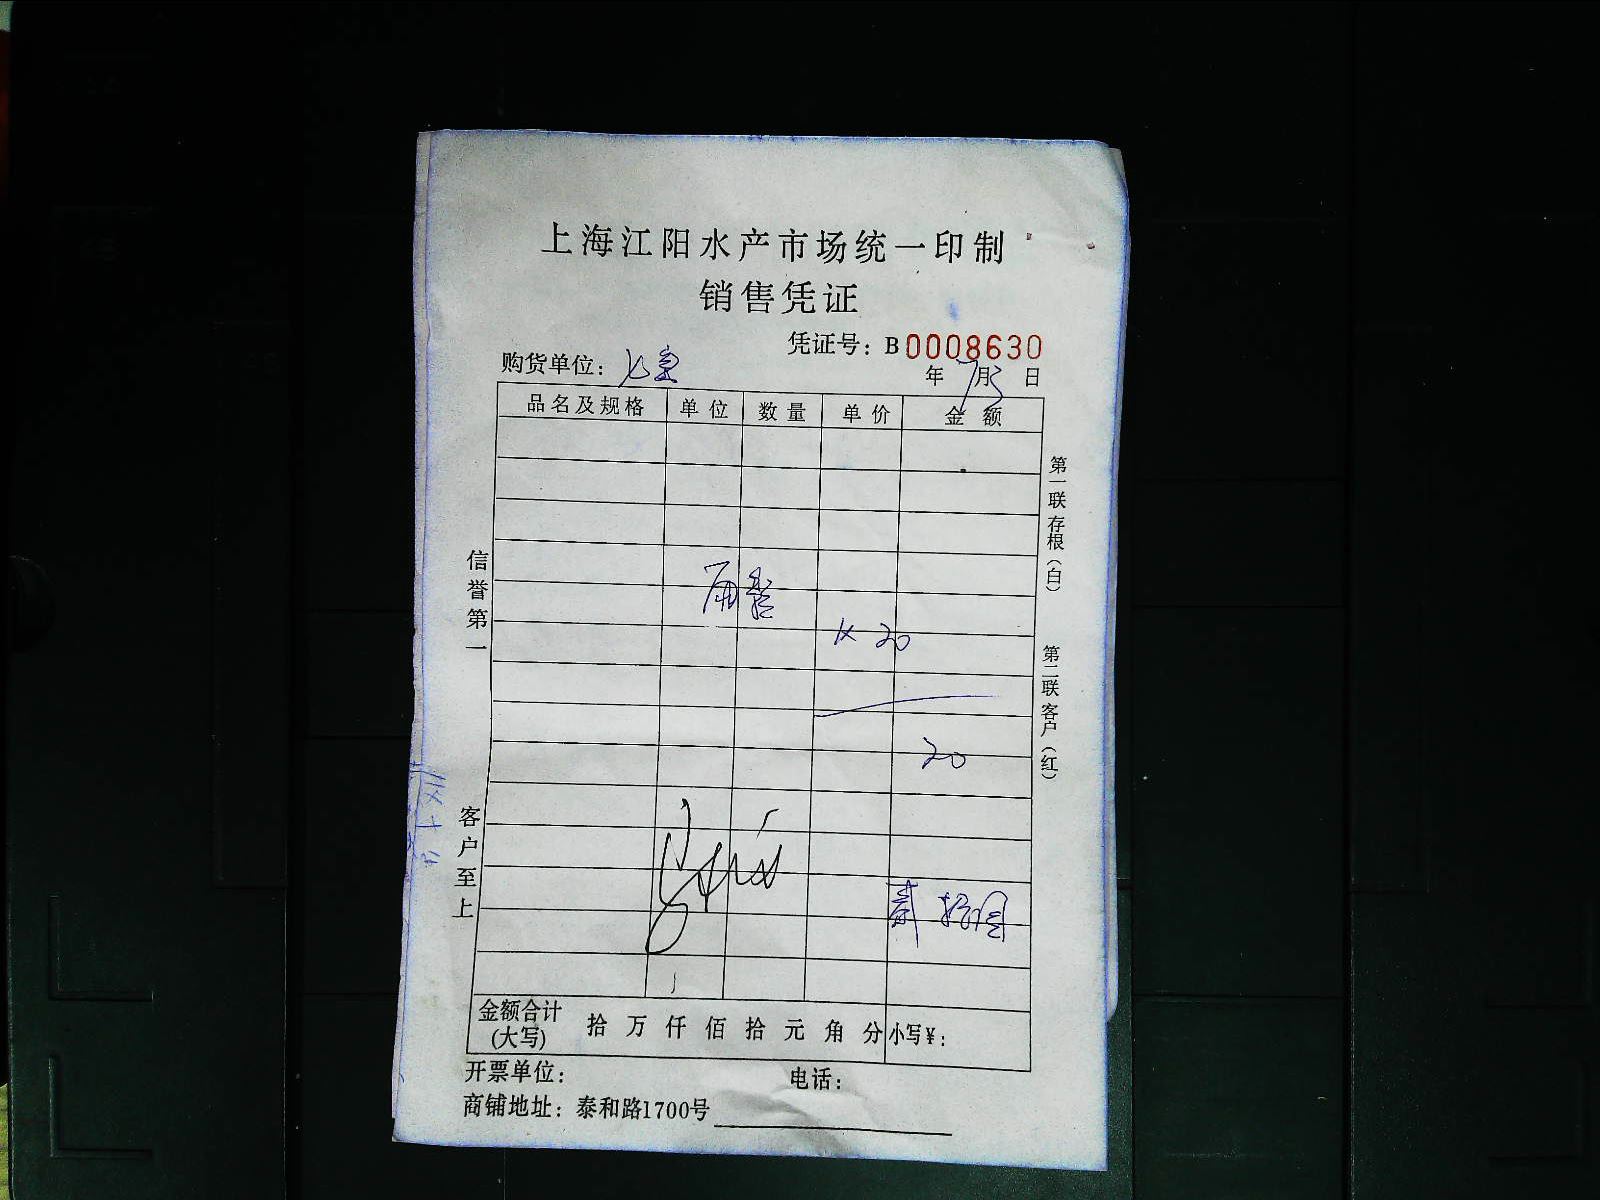 上海江阳水产市场统一印制
销售凭证
凭证号：B0008630
购货单位：七宝
年7月3日
品名及规格 单位 数量 单价 金额
1×20
20
贰拾圆
金额合计(大写) 拾万仟佰拾元角分 小写¥：
开票单位： 电话：
商铺地址：泰和路1700号
信誉第一
客户至上
第一联存根（白）
第二联客户（红）